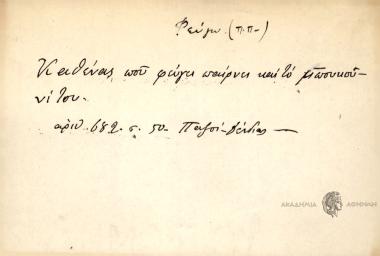 Φεύγω (π.π-)
Καθένας ποῦ φεύγει παίρνει καὶ τὸ
νί του.
αριθ. 682. σ. 50. Παξοί -
ΑΚΑΔΗΜΙΑ ΑΘΗΝΩΝ